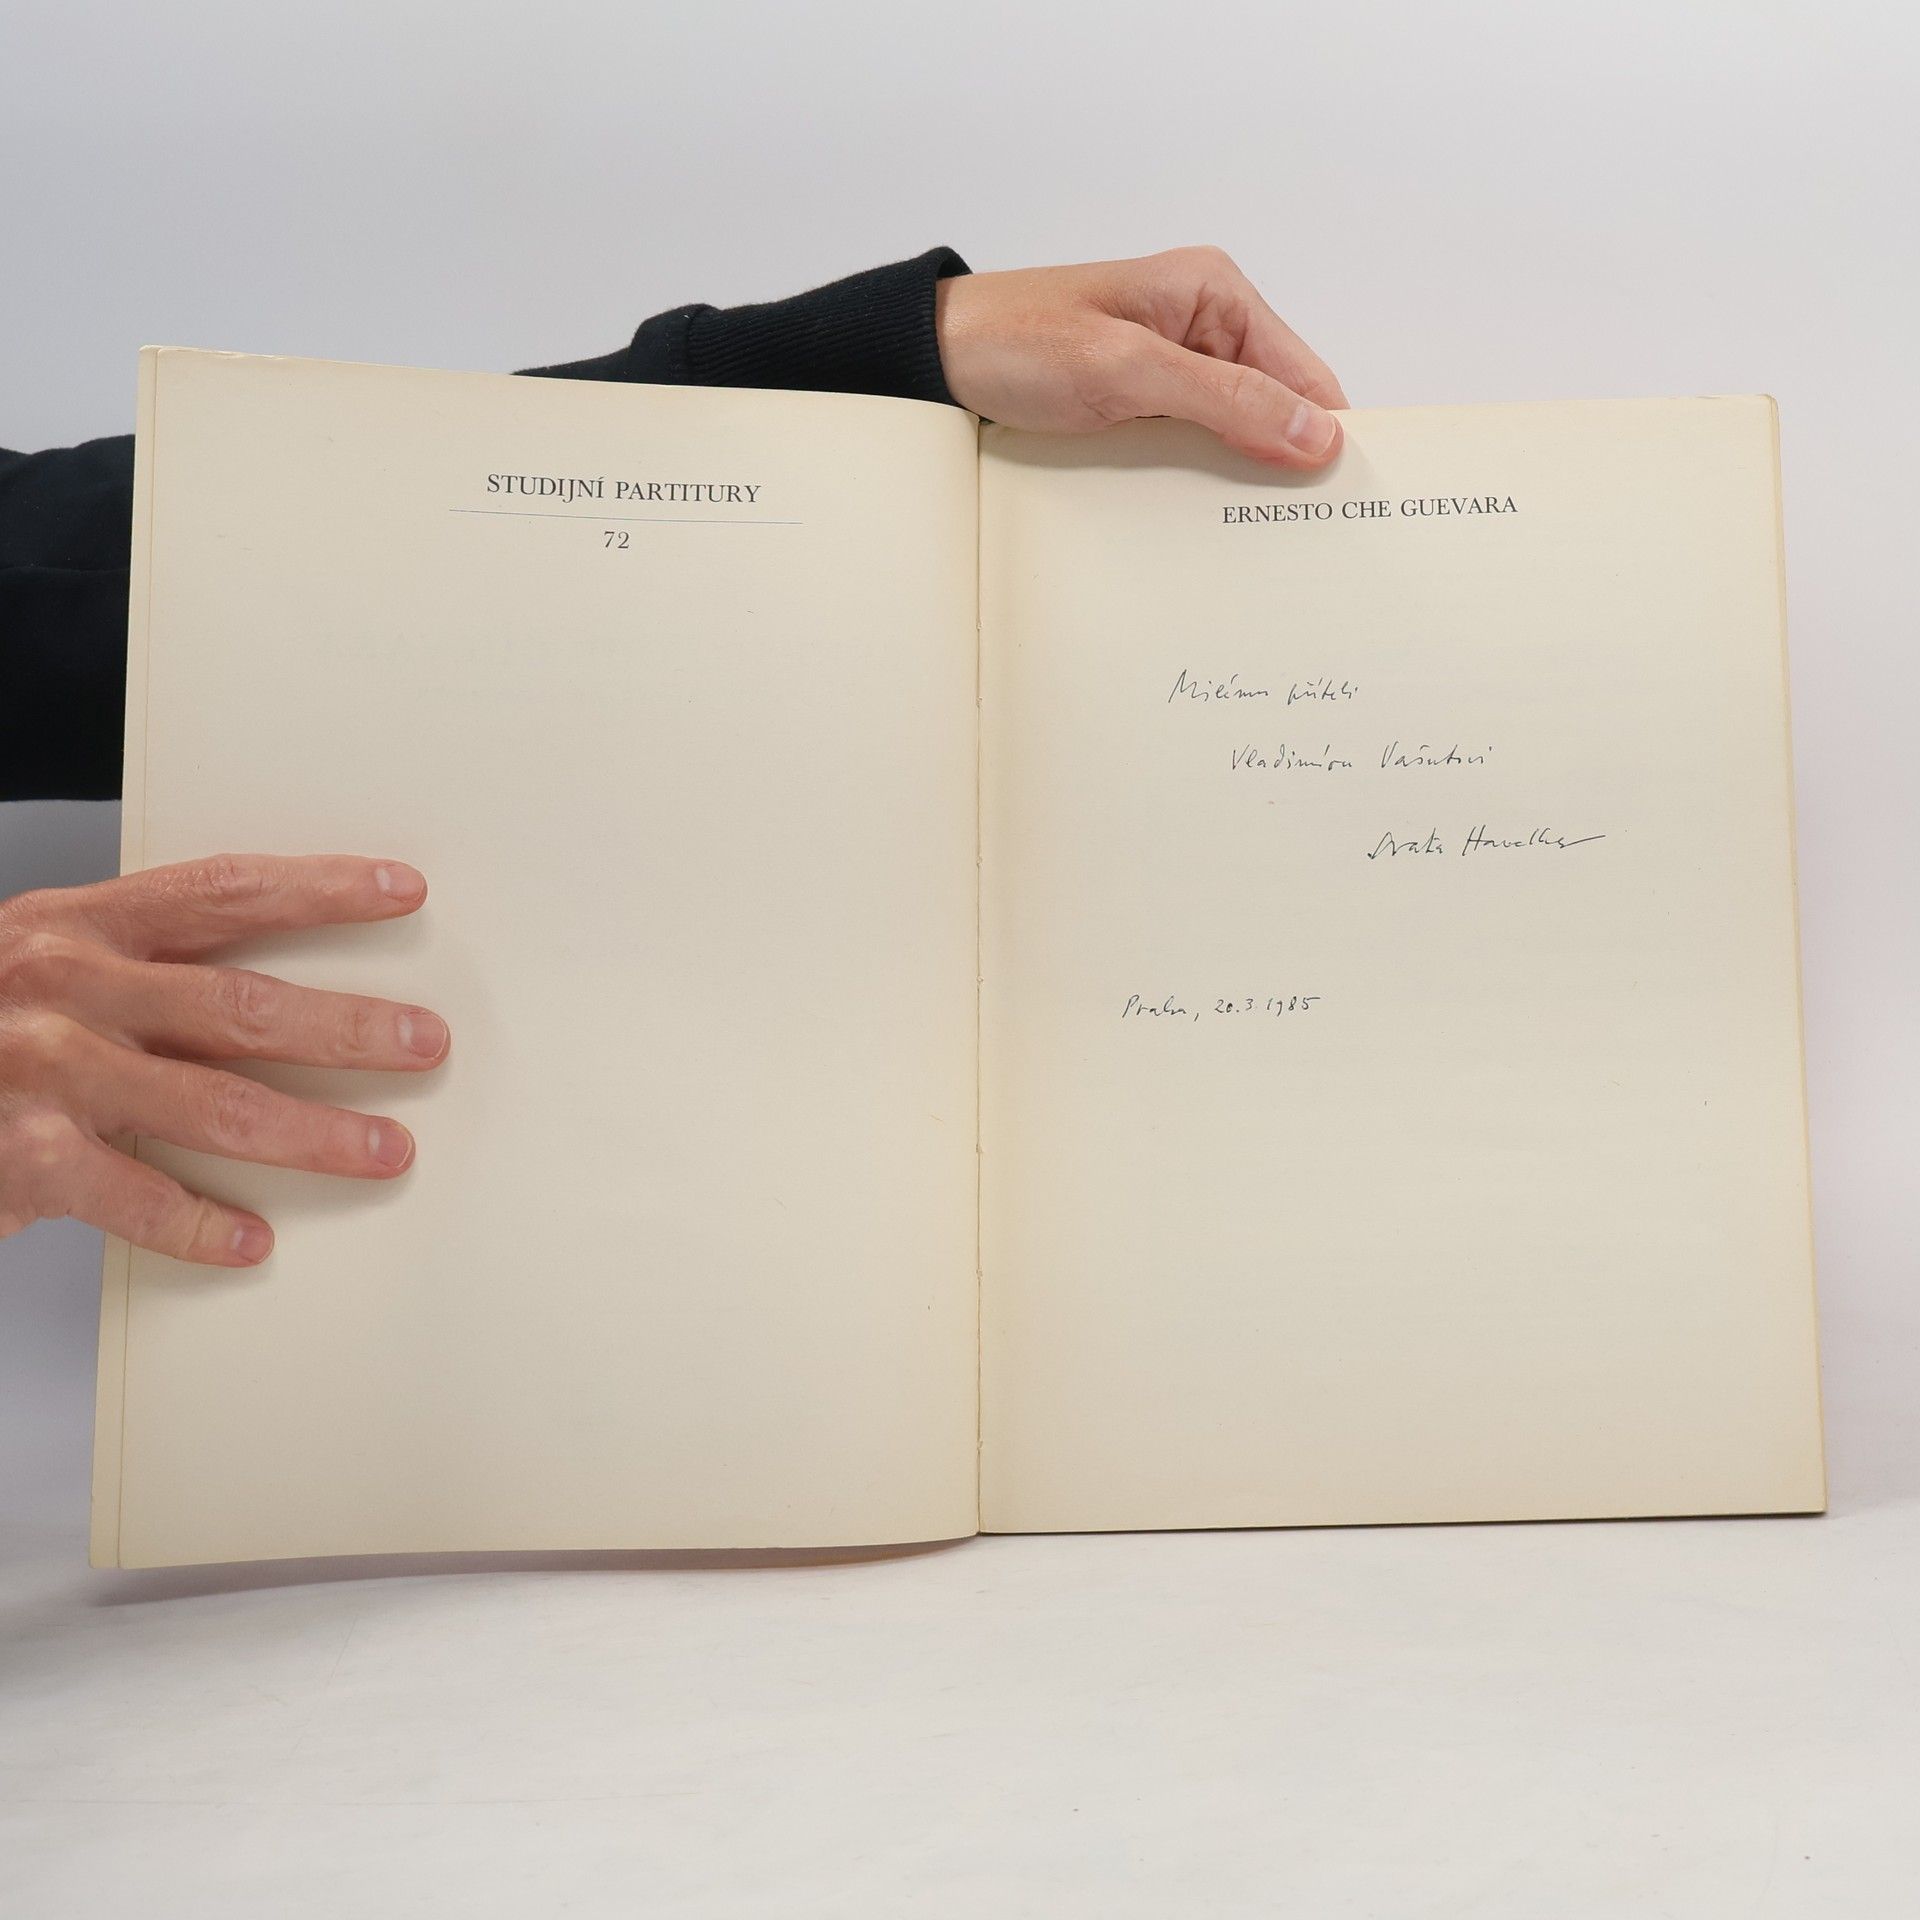 STUDIJNÍ PARTITURY
72
ERNESTO CHE GUEVARA
Milému příteli
Vladimíru Vašutovi
Svaťa Havelka
Praha, 20.3.1985